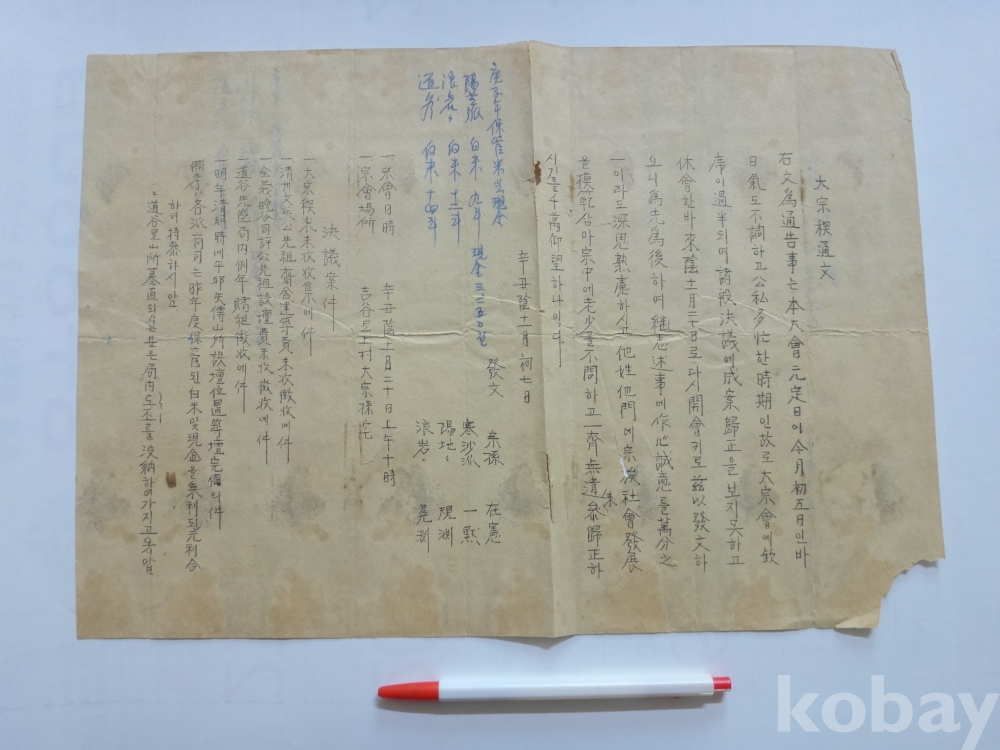 大宗稧通文
右文爲通告事는本大會元定日이今月初五日인바
日氣도不調하고公私多忙한時期인故로大宗會에欽
席이過半되여諸般決議에成案歸正을보지못하고
休會한바來陰十一月二十日로다시開會키로玆以發文하
오니爲先爲後하여繼志述事에作心誠意를萬分之
一이라도深思熟慮하시고他姓他門에宗族社會發展
을模範삼아宗中에老少를不問하고一齊無違參歸正하
시기를千萬仰望하나이다
辛丑陰十一月初七日
發文 宗孫 在憲
寒沙派 一默
陽地〃 觀淵
浪岩〃 晃淵
庚子年保管米및現金
陽地派 白米 九斗 現金
浪岩〃 白米 十二斗
道谷 白米 十四斗
一宗會日時 辛丑陰十一月二十日上午十時
一宗會場所 吉谷里上村大宗孫宅
決議案件
一大宗稧本未收收集에件
一淸州文公先祖齋舍建築費未收徵收에件
一全義晩谷司評公先祖設壇費未收徵收에件
一道谷先塋局內例年賭租徵收에件
一明年淸明時에平邱失傳山所設壇位置築壇完備의件
備考各派有司는昨年度保管된白米및現金을本利된元利合
하여持參하시압
〃道谷里山所墓直되시는분은局內도조를沒納하여가지고옵시압
kobay